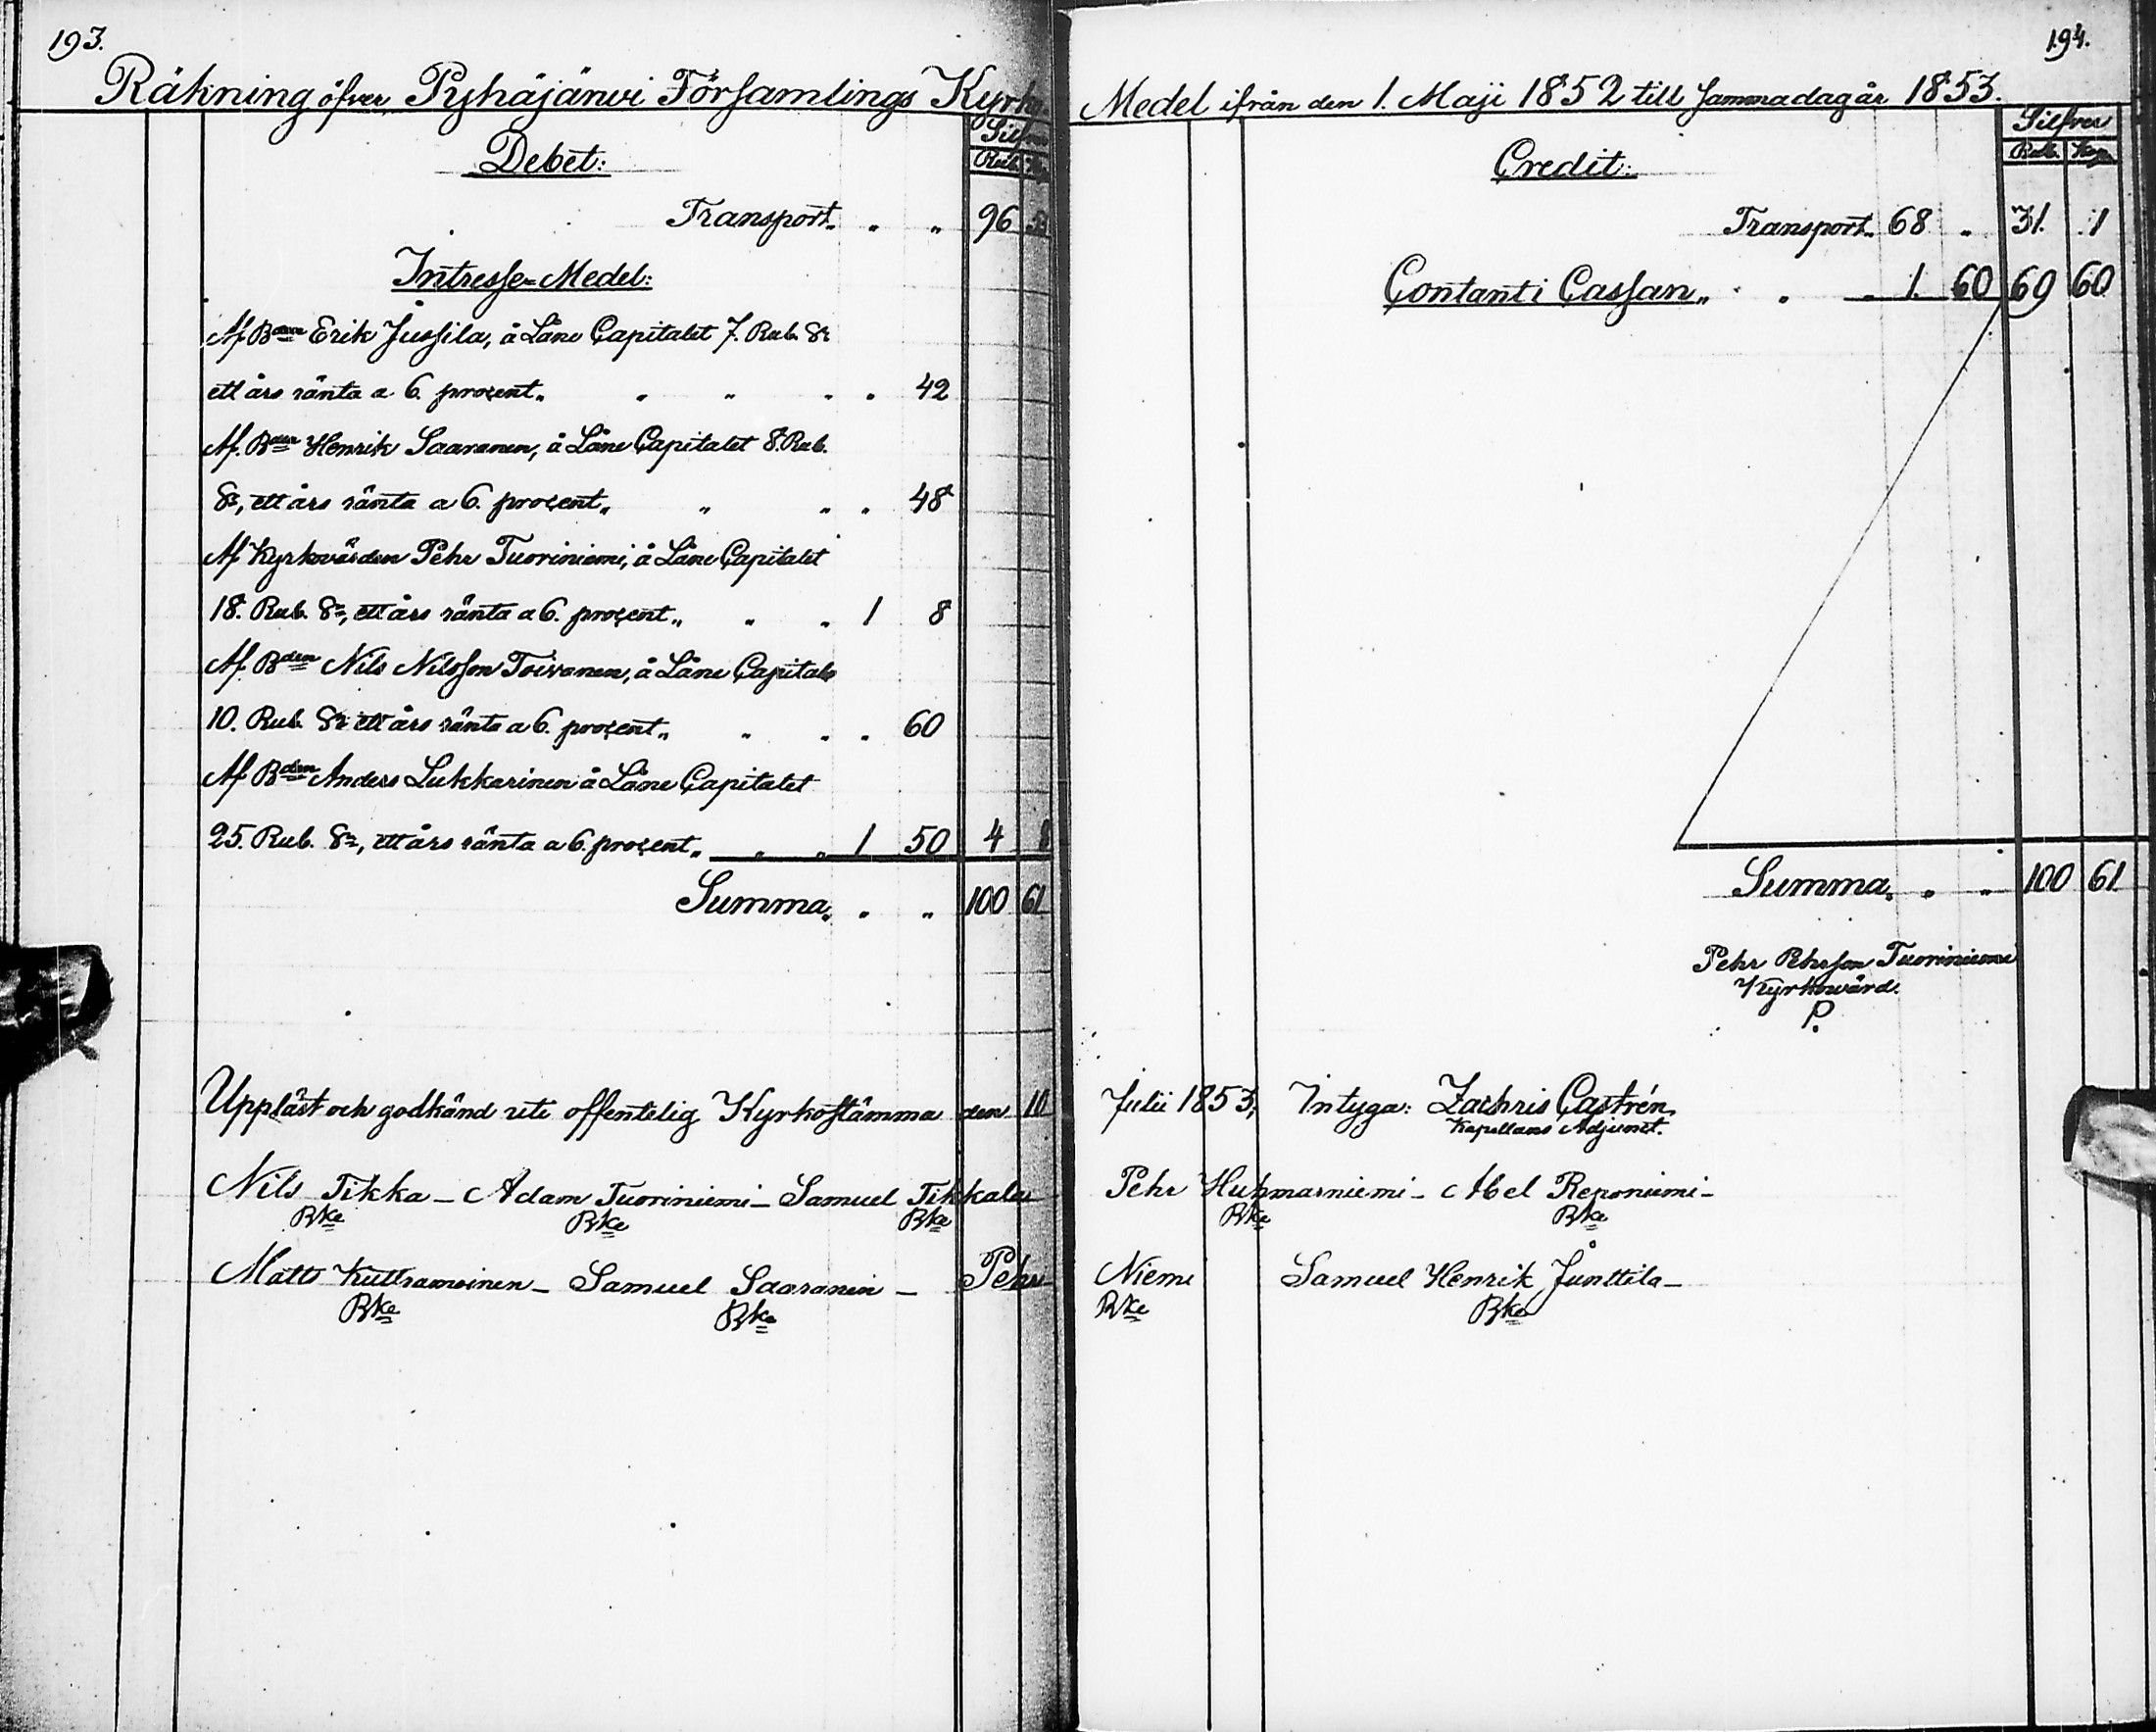 193.
Räkning öfver Pyhäjärwi Församlings Kyrko
Silfver
Debet:
Rub. Kop
Transport „ „ „ 96 53
Intresse-Medel:
Af Bden Erik Jussila, å Låne Capitalet 7. Rub. Sr
ett års ränta a 6. procent „ „ „ „ „ 42
Af. Bden Henrik Saaranen, å Låne Capitalet 8. Rub.
Sr, ett års ränta a 6. procent „ „ „ „ 48
Af Kyrkovärden Pehr Tuoriniemi, å Låne Capitalet
18. Rub. Sr, ett års ränta a 6. procent „ „ „ 1 8
Af. Bden Nils Nilsson Toivanen, å Låne Capitale
10. Rub. Sr ett års ränta a 6. procent „ „ „ „ 60
Af Bden Anders Lukkarinen å Låne Capitalet
25. Rub. Sr, ett års ränta a 6. procent „ „ „ 1 50 4 8
Summa „ „ „ 100 61
Uppläst och godkänd uti offentelig Kyrkostämma den 10
Nils Tikka – Adam Tuoriniemi – Samuel Tikkala
Bke Bke Bke
Matts – Samuel Saaranen – Pehr
Bke Bke
194.
Medel ifrån den 1. Maji 1852 till samma dag år 1853.
Silfver
Credit:
Rub. Kop
Transport „ 68 „ 31. 1
Contant i Cassan „ „ „ „ 1. 60 69 60
Summa „ „ „ 100 61
Pehr Pehrson Tuoriniemi
Kyrkowärd.
P.
Julii 1853, Intyga: Zachris Castrén,
Kapellans Adjunct.
Pehr Huhmarniemi – Abel Reponiemi –
Bke Bke
Niemi Samuel Henrik Junttila –
Bke Bke